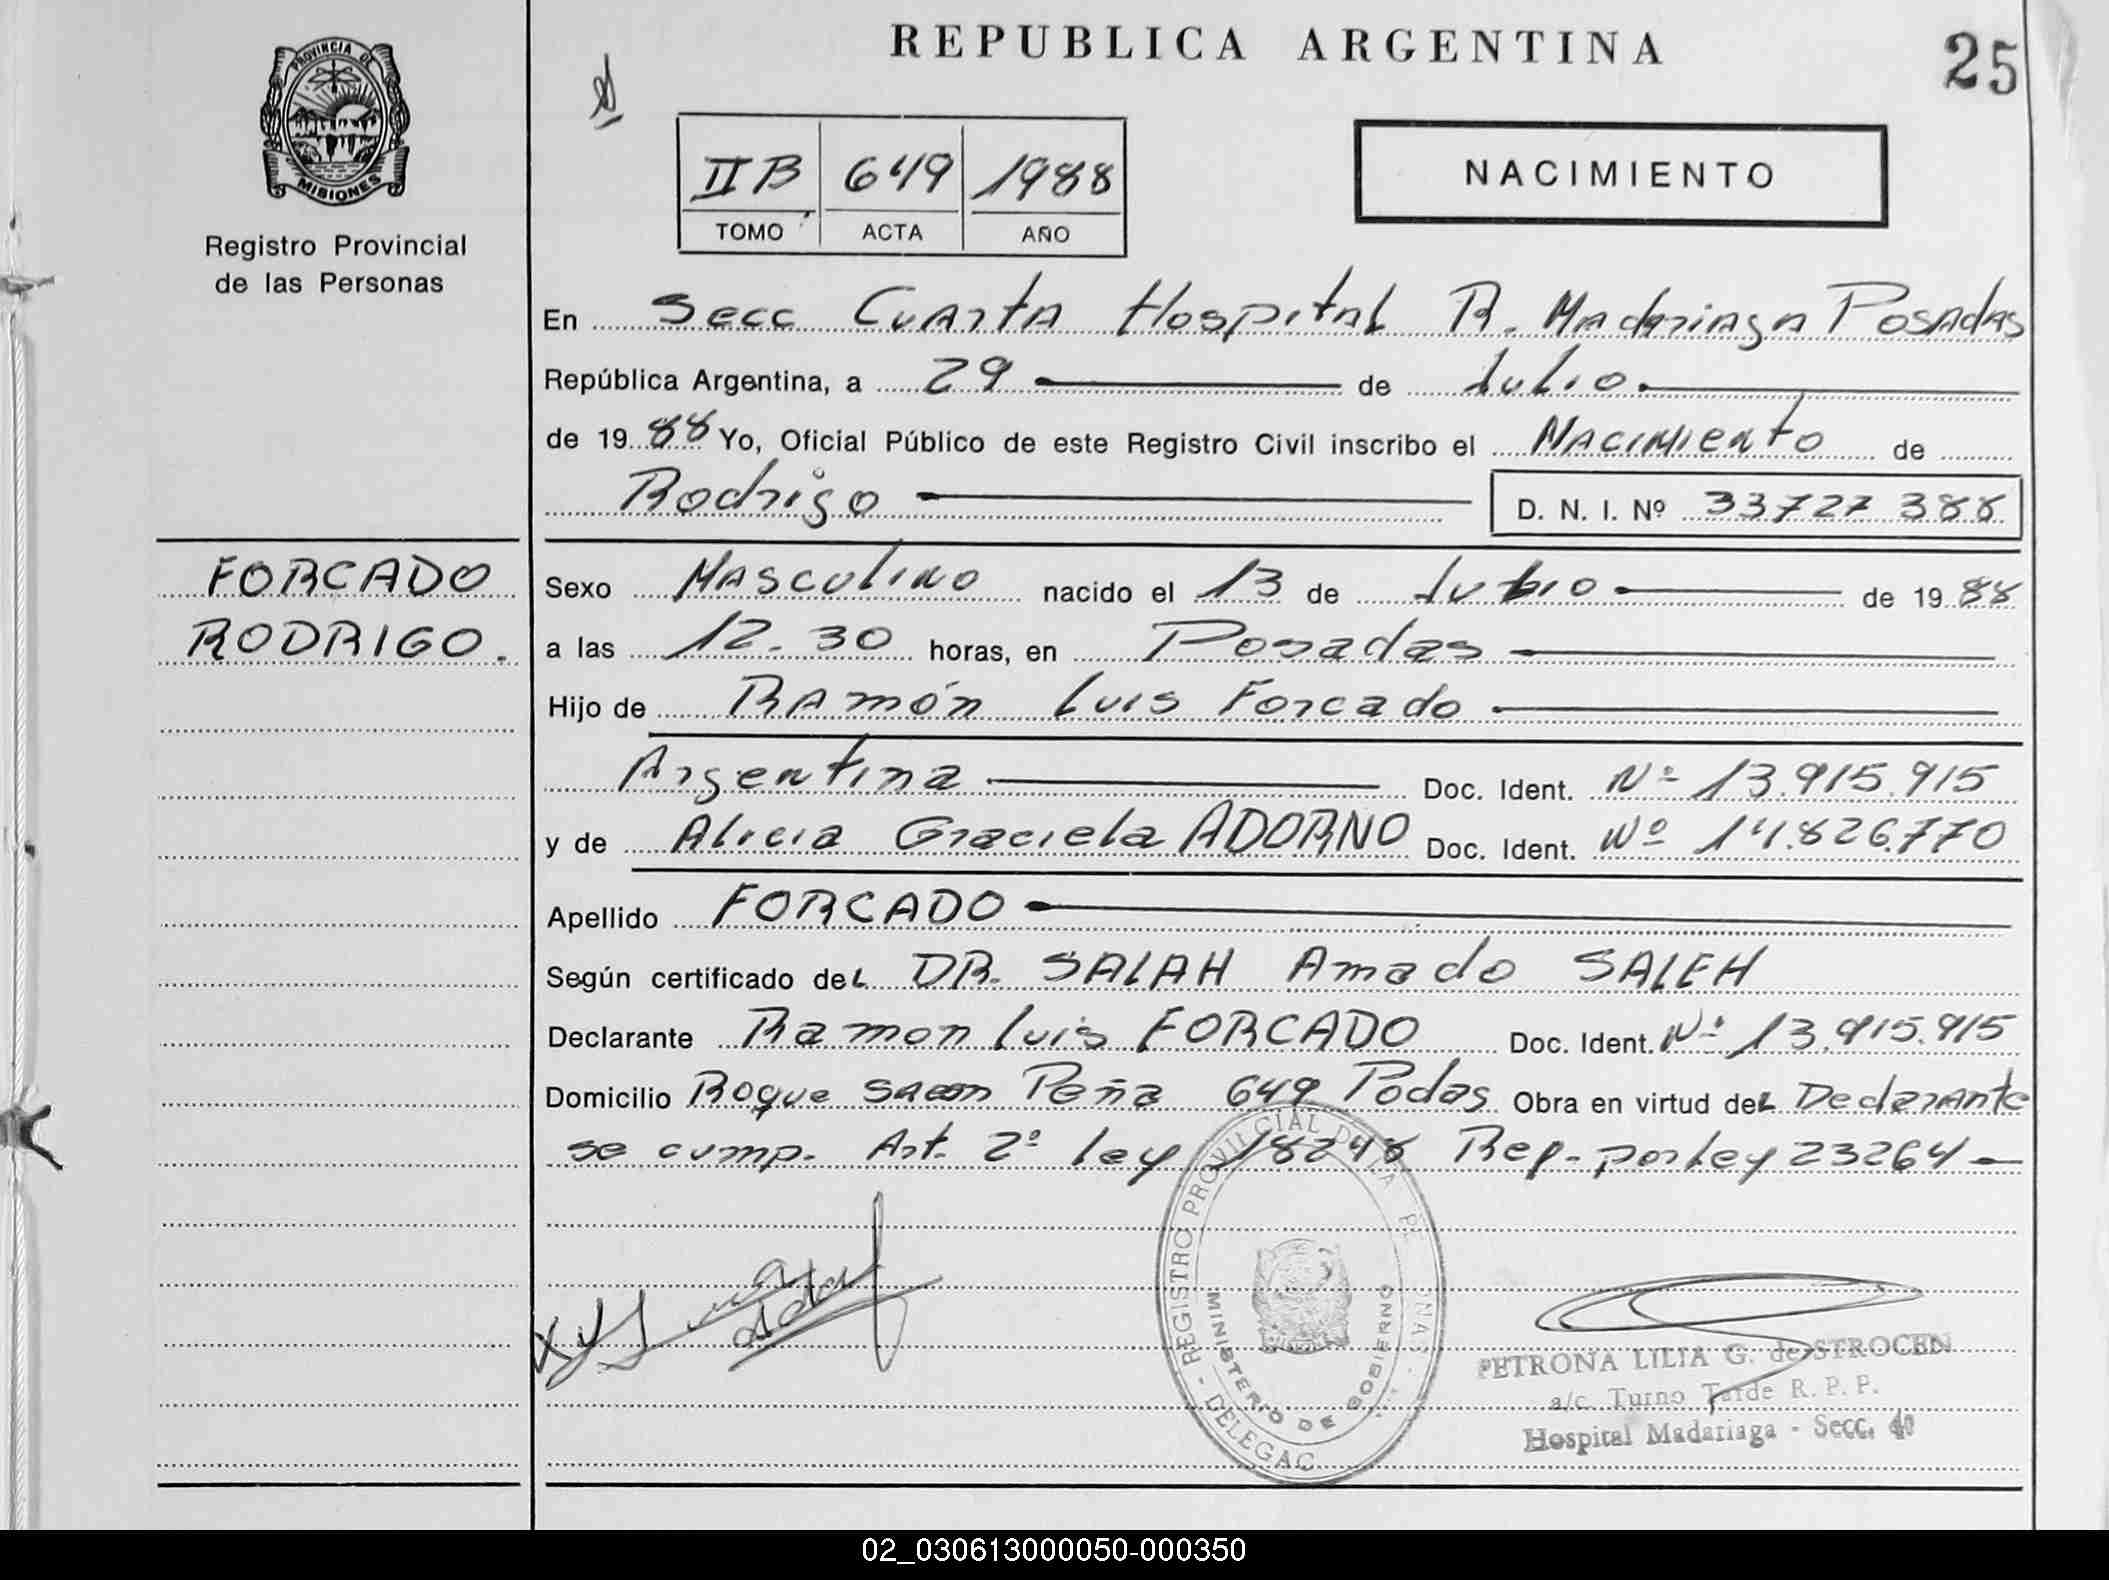 REPUBLICA ARGENTINA
25
PROVINCIA DE
MISIONES
Registro Provincial
de las Personas
II B 649 1988
TOMO ACTA AÑO
NACIMIENTO
En Secc Cuarta Hospital R. Madariaga Posadas
República Argentina, a 29 de Julio
de 1988 Yo, Oficial Público de este Registro Civil inscribo el Nacimiento de
Rodrigo D. N. I. Nº 33727 388
FORCADO
RODRIGO.
Sexo Masculino nacido el 13 de Julio de 1988
a las 12.30 horas, en Posadas
Hijo de Ramón Luis Forcado
Argentina Doc. Ident. Nº 13.915.915
y de Alicia Graciela ADORNO Doc. Ident. Nº 14.826.770
Apellido FORCADO
Según certificado del DR. SALAH Amado SALEH
Declarante Ramon Luis FORCADO Doc. Ident. Nº 13.915.915
Domicilio Roque Peña 649 Podas Obra en virtud del Declarante
se cump. Art. 2º ley 18248 Rep. por Ley 23264
REGISTRO PROVILCIAL DE
MINISTERIO DE GOBIERNO
DELEGAC
PETRONA LILIA G. de STROCEN
a/c. Turno Tarde R. P. P.
Hospital Madariaga - Secc. 4º
02_030613000050-000350